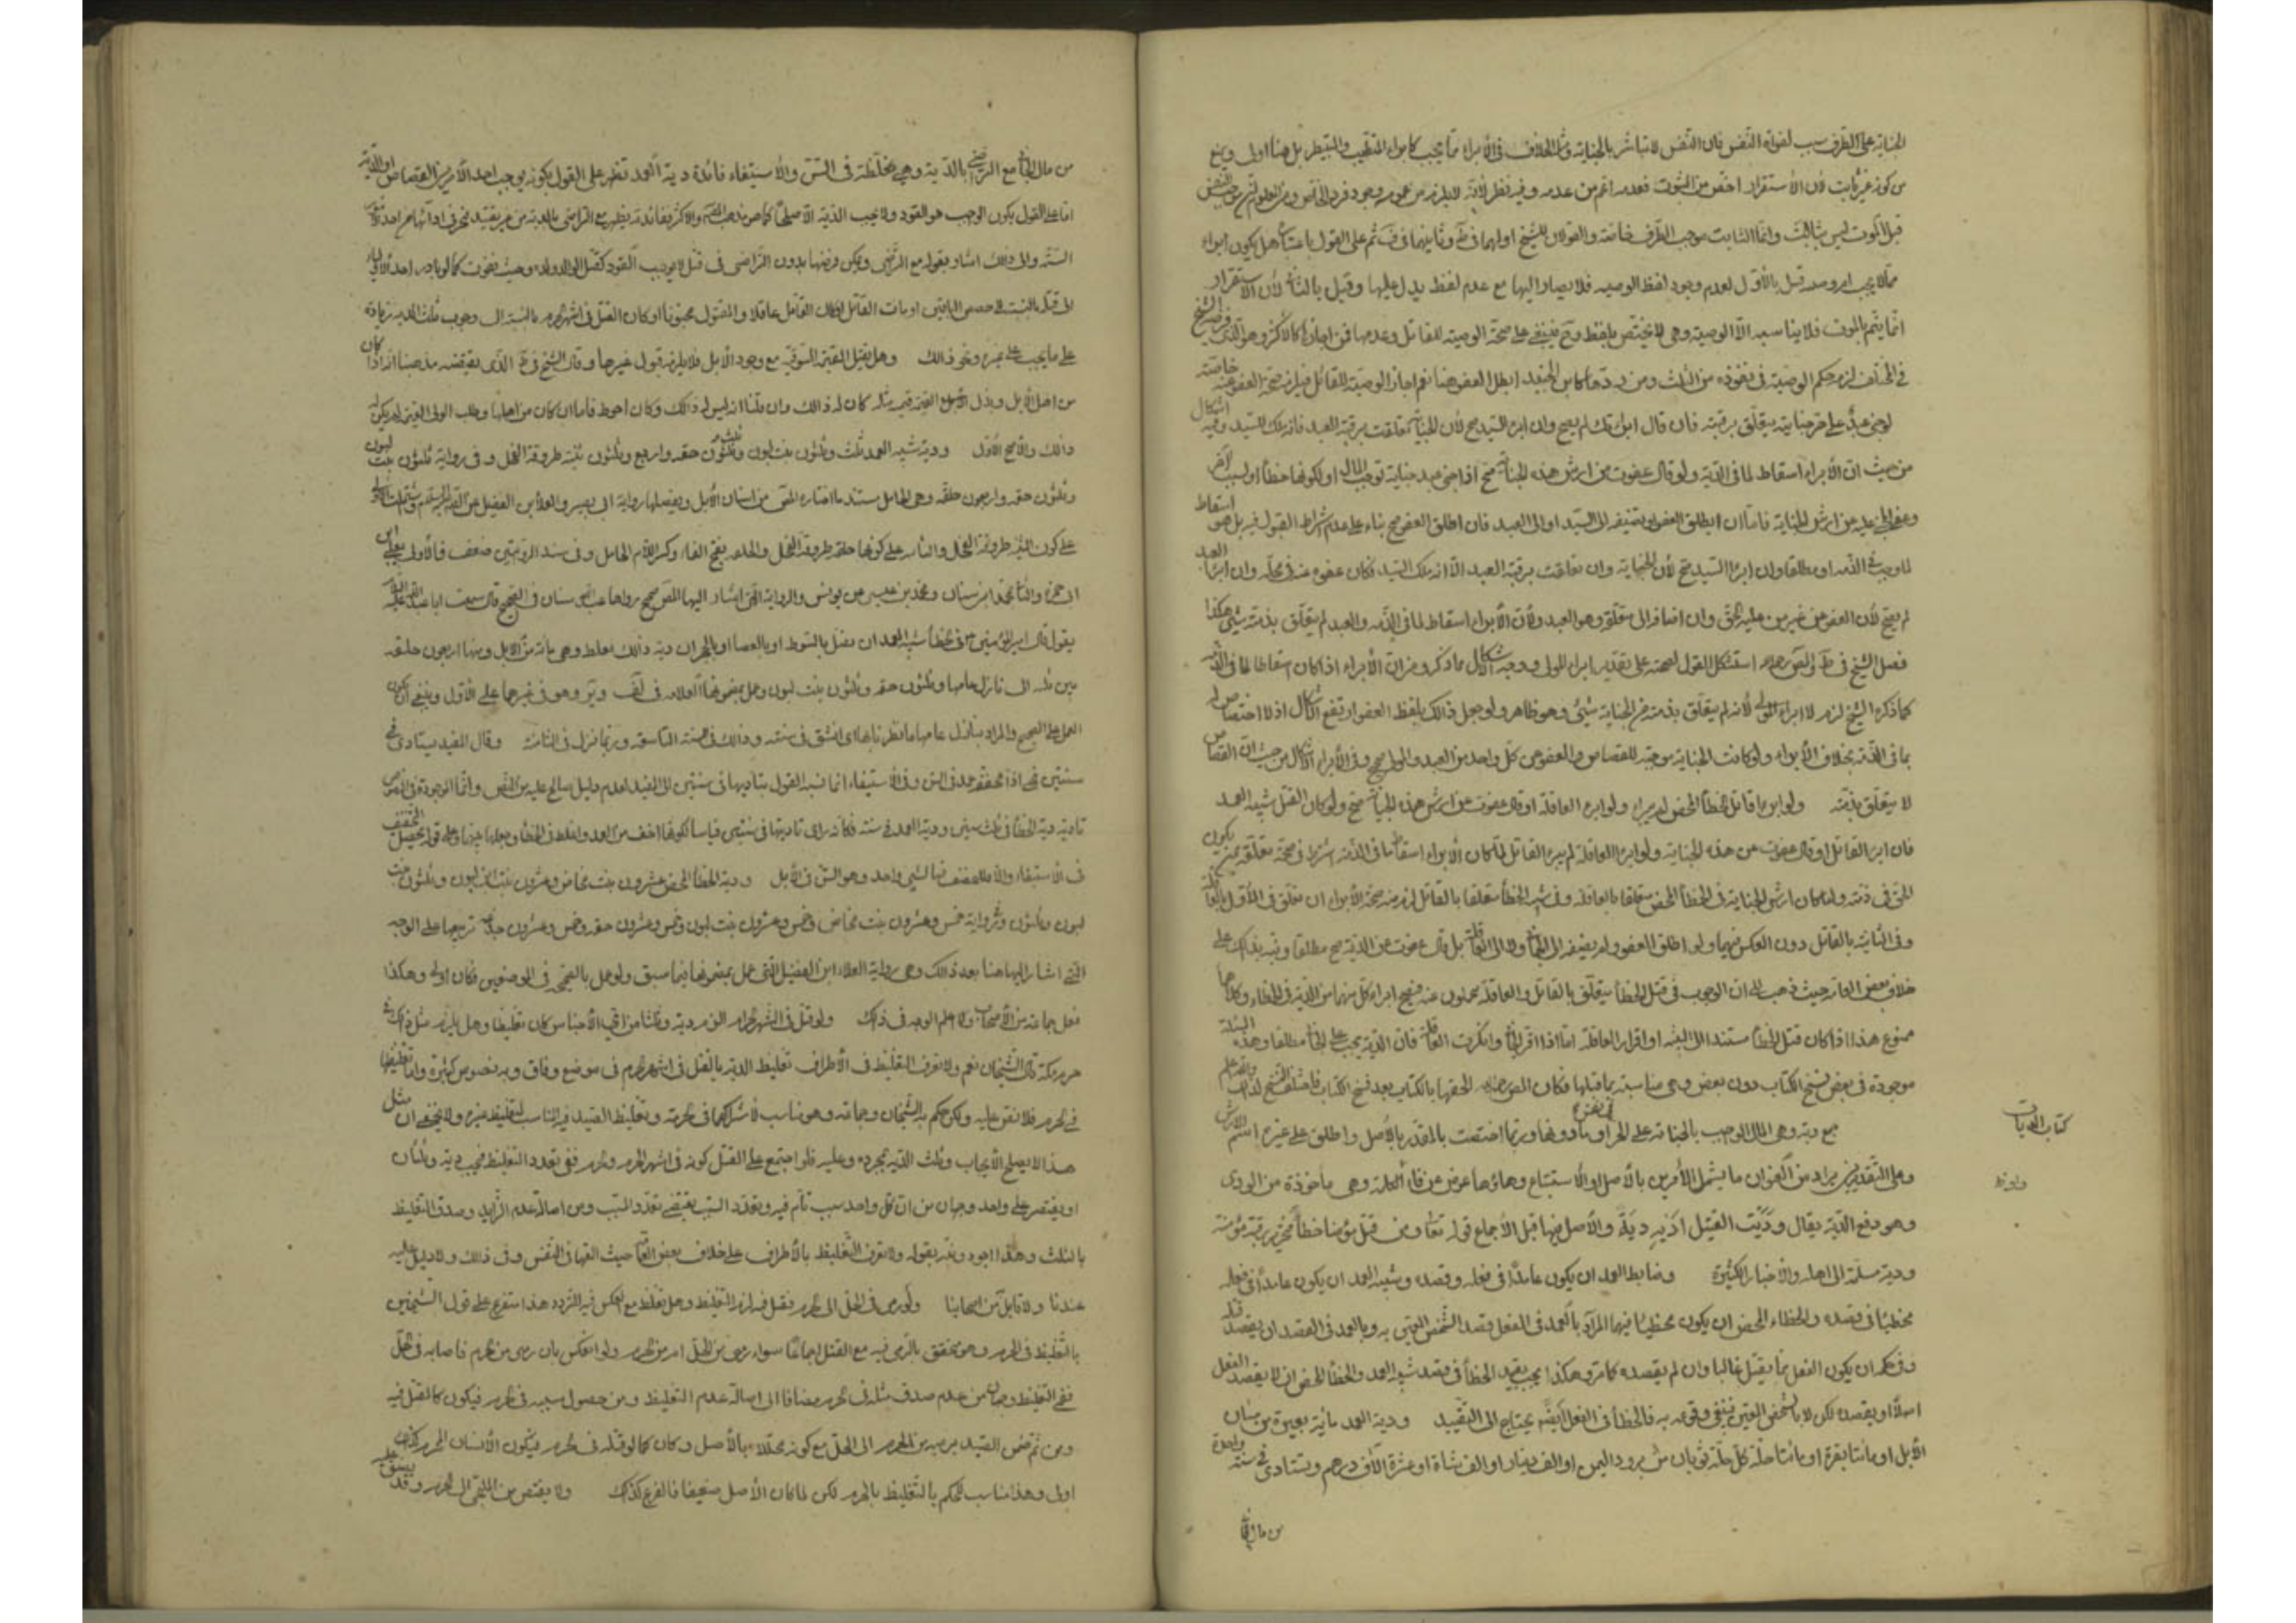 الجناية على الطرف سبب لفوات النفس فان النفس لا تباشر بالجناية ومثله الخلاف في الابراء مما يجب كابراء المتطبب والمتبيطر بل هنا اولى ويمنع
من كونه غير ثابت لان الاستقرار اخص من الثبوت فعدمه اعم من عدمه وفيه نظر لانه لا يلزم من عموم وجود فرد الخاص ومن المعلوم ان موجب النفس
قبل الموت ليس بثابت وانما الثابت موجب الطرف خاصة والقولان للشيخ اولهما في ط وثانيهما في ف ثم على القول باعتباره هل يكون ابراء
مما لا يجب او وصية قيل بالاول لعدم وجود لفظ الوصية فلا يصار اليها مع عدم لفظ يدل عليها وقيل بالثاني لان الاستقرار
انما يتم بالموت فلا يناسبه الا الوصية وهي لا تختص بلفظ وح فيبنى على صحة الوصية للقاتل وعدمها فمن اجازها كالاكثر وهو الذي فرضه الشيخ
في الخلاف لزمه حكم الوصية في نفوذه من الثلث ومن ردها كابن الجنيد ابطل العفو هنا نعم اجاز الوصية للقاتل فيلزمه صحة العفو عنه خاصة
لو جنى عبد على حر جناية يتعلق برقبته فان قال ابرأتك لم يصح وان ابرأ السيد صح لان الجناية تعلقت برقبة العبد فانه ملك السيد وفيه اشكال
من حيث ان الابراء اسقاط لما في الذمة ولو قال عفوت عن ارش هذه الجناية صح اذا جنى عبد جناية توجب المال او لكونها خطأ او لسبب آخر
وعفى المجني عليه عن ارش الجناية فاما ان يطلق العفو او يضيفه الى السيد او الى العبد فان اطلق العفو صح بناء على عدم اشتراط القبول فيه بل هو اسقاط
لما وجب في الذمة او مطلقا وان ابرأ السيد صح لان الجناية وان تعلقت برقبة العبد الا انه ملك السيد فكان عفوه عنه في محله وان ابرأ العبد
لم يصح لان العفو عن غير من عليه الحق وان اضافه الى متعلقه وهو العبد ولان الابراء اسقاط لما في الذمة والعبد لم يتعلق بذمته شيء هكذا
فصل الشيخ في ط والمصنف استشكل القول لصحته على تقدير ابراء المولى ووجه الاشكال مما ذكر ومن ان الابراء اذا كان اسقاطا لما في الذمة
كما ذكره الشيخ لزم لا ابراء المولى لانه لم يتعلق بذمته من الجناية شيء وهو ظاهر ولو جعل ذلك بلفظ العفو ارتفع الاشكال اذ لا اختصاص له
بما في الذمة بخلاف الابراء ولو كانت الجناية موجبة للقصاص والعفو عن كل واحد من العبد والمولى صح وفي الابراء اشكال من حيث ان القصاص
لا يتعلق بذمته ولو ابرء قاتل الخطأ المحض لم يبرء ولو ابرء العاقلة او قال عفوت عن ارش هذه الجناية صح ولو كان القتل شبيه العمد
فان ابرأ القاتل او قال عفوت عن هذه الجناية ولو ابرأ العاقلة لم يبرء القاتل لما كان الابراء اسقاط ما في الذمة اشترط في صحته تعلقه بمن يكون
الحق في ذمته ولما كان ارش الجناية في الخطأ المحض متعلقا بالعاقلة وفي شبه الخطأ متعلقا بالقاتل لزم منه صحة الابراء ان تعلق في الاول بالعاقلة
وفي الثانية بالقاتل دون العكس فيهما ولو اطلق العفو ولم يضفه الى القاتل ولا الى العاقلة بل قال عفوت عن الدية صح مطلقا ونبه بذلك على
خلاف بعض العامة حيث ذهب الى ان الوجوب في قتل الخطأ يتعلق بالقاتل والعاقلة يحملون عنه فيصح ابراء كل منهما من الدية في الخطاء وكلاهما
ممنوع هذا اذا كان قتل الخطأ مستندا الى البينة او اقرار العاقلة اما اذا اقر القاتل وانكرت العاقلة فان الدية يجب على القاتل مطلقا وهذه المسئلة
موجودة في بعض نسخ الكتاب دون بعض وهي مناسبة بما قبلها فكان المصنف الحقها بالكتاب بعد نسخ الكتاب فاختلف النسخ لذلك والله اعلم
كتاب الديات
جمع دية وهي المال الواجب بالجناية على الحر في نفس او ما دونها وربما اختصت بالمقدر بالاصل واطلق على غيره اسم الارش
وعلى التقديرين يراد من العنوان ما يشمل الامرين بالاصل او الاستتباع وهاؤها عوض عن فاء الكلمة وهي مأخوذة من الودى
وهو دفع الدية يقال وديت القتيل اديه دية والاصل فيها قبل الاجماع قوله تعالى ومن قتل مؤمنا خطأ فتحرير رقبة مؤمنة
ودية مسلمة الى اهله والاخبار الكثيرة وضابط العمد ان يكون عامدا في فعله وقصده وشبيه العمد ان يكون عامدا في فعله
مخطئا في قصده والخطاء المحض ان يكون مخطئا فيهما المراد بالعمد في الفعل قصد الشخص المعين به وبالعمد في القصد ان يقصد قتله
وفي حكمه ان يكون الفعل مما يقتل غالبا وان لم يقصده كما مر وهكذا يجب تقييد الخطأ في قصد شبيه العمد والخطأ المحض ان لا يقصد الفعل
اصلا او يقصده لكن لا بالشخص المعين فيتفق وقوعه به فالخطأ في الفعل ايضا يحتاج الى التقييد ودية العمد مائة بعير من مسان
الابل او مائتا بقرة او مائتا حلة كل حلة ثوبان من برود اليمن او الف دينار او الف شاة او عشرة آلاف درهم وتستادى في سنة واحدة
من مال الجاني
من مال الجاني مع التراضي بالدية وهي مغلظة في السن والاستيفاء فائدة دية العمد تظهر على القول بكونه يوجب احد الامرين القصاص او الدية
اما على القول بكون الواجب هو القود ولا يجب الدية الا صلحا كما هو مذهب المصنف والاكثر ففائدته يظهر مع التراضي بالدية من غير تقييد
السنة والى ذلك اشار بقوله مع التراضي ويمكن فرضها بدون التراضي في قتل لا يوجب القود كقتل الوالد ولده وحيث يفوت كما لو بادر احد الاولياء
الى قتله بالنسبة الى حصص الباقين او مات القاتل او كان القاتل عاقلا والمقتول مجنونا او كان القتل في اشهر الحرم بالنسبة الى وجوب ثلث الدية زيادة
على ما يجب على غيره ونحو ذلك وهل يقبل القيمة السوقية مع وجود الابل فلا يلزمه قبول غيرها وقال الشيخ في ط الذي يقتضيه مذهبنا انه اذا كان
من اهل الابل وبذل القيمة قيمة مثله كان له ذلك وان قلنا انه ليس له ذلك وكان احوط فاما ان كان من اهلها وطلب الولي القيمة لم يكن له
ذلك والاصح الاول ودية شبيه العمد ثلث وثلثون بنت لبون وثلث وثلثون حقه واربع وثلثون ثنية طروقة الفحل وفي رواية ثلثون بنت لبون
وثلثون حقه واربعون خلفه وهي الحامل مستند ما اختاره المصنف من اسنان الابل وتفصيلها رواية ابي بصير والعلاء بن الفضيل عن الصادق عليه السلم
على كون الثنية طروقة الفحل والثانية على كونها خلفه طروقة الفحل والخلفه بفتح الخاء وكسر اللام الحامل وفي سند الروايتين ضعف فالاولى بعلي بن
ابي حمزة والثانية بمحمد بن سنان ومحمد بن عيسى عن يونس والرواية التي اشار اليها المصنف صحيح رواها عبد الله بن سنان في الصحيح قال سمعت ابا عبد الله عليه السلام
يقول قال امير المؤمنين في الخطأ شبيه العمد ان يقتل بالسوط او بالعصا او بالحجر ان دية ذلك تغلظ وهي مائة من الابل ومنها اربعون خلفه
بين ثنية الى بازل عامها وثلثون حقه وثلثون بنت لبون وعمل بمضمونها العلامة في لف وير وهو في غيرهما على الاول وينبغي ان يكون
العمل على الصحيح والمراد ببازل عامها ما فطر نابها اى انشق في سنته وذلك في السنة التاسعة وربما نزل في الثامنة وقال المفيد يستادى في
سنتين فهي اذا مخففة عن العمد في السن وفي الاستيفاء انما نسب القول بتاديها في سنتين الى المفيد لعدم دليل صالح عليه من النص وانما الموجود في النصوص
تادية دية الخطأ في ثلث سنين ودية العمد في سنة فكأنه راى تاديتها في سنتين قياسا لكونها اخف من العمد واغلظ من الخطأ
في الاستيفاء والا فالمخفف فيها لشيء واحد وهو السن في الابل ودية الخطأ المحض عشرون بنت مخاض وعشرون ابن لبون وثلثون بنت
لبون وثلثون حقه وفي رواية خمس وعشرون بنت مخاض وخمس وعشرون بنت لبون وخمس وعشرون حقه وخمس وعشرون جذعة ترجيحا على الوجه
التي اشار اليها هنا بعد ذلك وهي رواية العلاء ابن الفضيل التي عمل بمضمونها فيما سبق ولو عمل بالصحيحة في الموضعين فكان اولى وهكذا
فعل جماعة من الاصحاب ولا اعلم الوجه في ذلك ولو قتل في الشهر الحرام الزم دية وثلثا من اي الاجناس كان تغليظا وهل يلزم مثل ذلك في
حرم مكة قال الشيخان نعم ولا نعرف التغليظ في الاطراف تغليظ الدية بالقتل في اشهر الحرم في موضع وفاق وبه نصوص كثيرة واما تغليظها
في الحرم فلا نص عليه ولكن حكم به الشيخان وجماعة وهو مناسب لاشتراكهما في الحرمة وتغليظ الصيد فيه المناسب لتغليظ غيره ولا يخفى ان مثل
هذا لا يصلح لايجاب وثلث الدية بمجرده وعليه فلو اجتمع على القتل كونه في اشهر الحرم وحرم ففي تعدد التغليظ فيجب دية وثلثان
او يقتصر على واحد وجهان من ان كل واحد سبب تام فيه وتعدد السبب يقتضي تعدد المسبب ومن اصالة عدم الزايد وصدق التغليظ
بالثلث وهذا اجود ونبه بقوله ولا نعرف التغليظ بالاطراف على خلاف بعض العامة حيث الحقها في النفس وفي ذلك ولا دليل عليه
عندنا ولا قايل من اصحابنا ولو رمى في الحل الى الحرم فقتل فيه لزم التغليظ وهل يغلظ مع العكس فيه التردد هذا متفرع على قول الشيخين
بالتغليظ في الحرم وهو متحقق بالرمي فيه مع القتل اجماعا سواء رمى من الحل ام من الحرم ولو انعكس بان رمى من الحرم فاصابه في الحل
ففي التغليظ وجهان من عدم صدق قتله في الحرم مضافا الى اصالة عدم التغليظ ومن حصول سببه في الحرم فيكون كالقتل فيه
ومن ثم ضمن الصيد برميه من الحرم الى الحل مع كونه محللا بالاصل وكان كما لو قتله في الحرم فيكون الانسان المحرم كذلك
اولى وهذا مناسب للحكم بالتغليظ بالحرم لكن لما كان الاصل ضعيفا فالفرع كذلك ولا يقتص من الملتجي الى الحرم وقد يضيق عليه